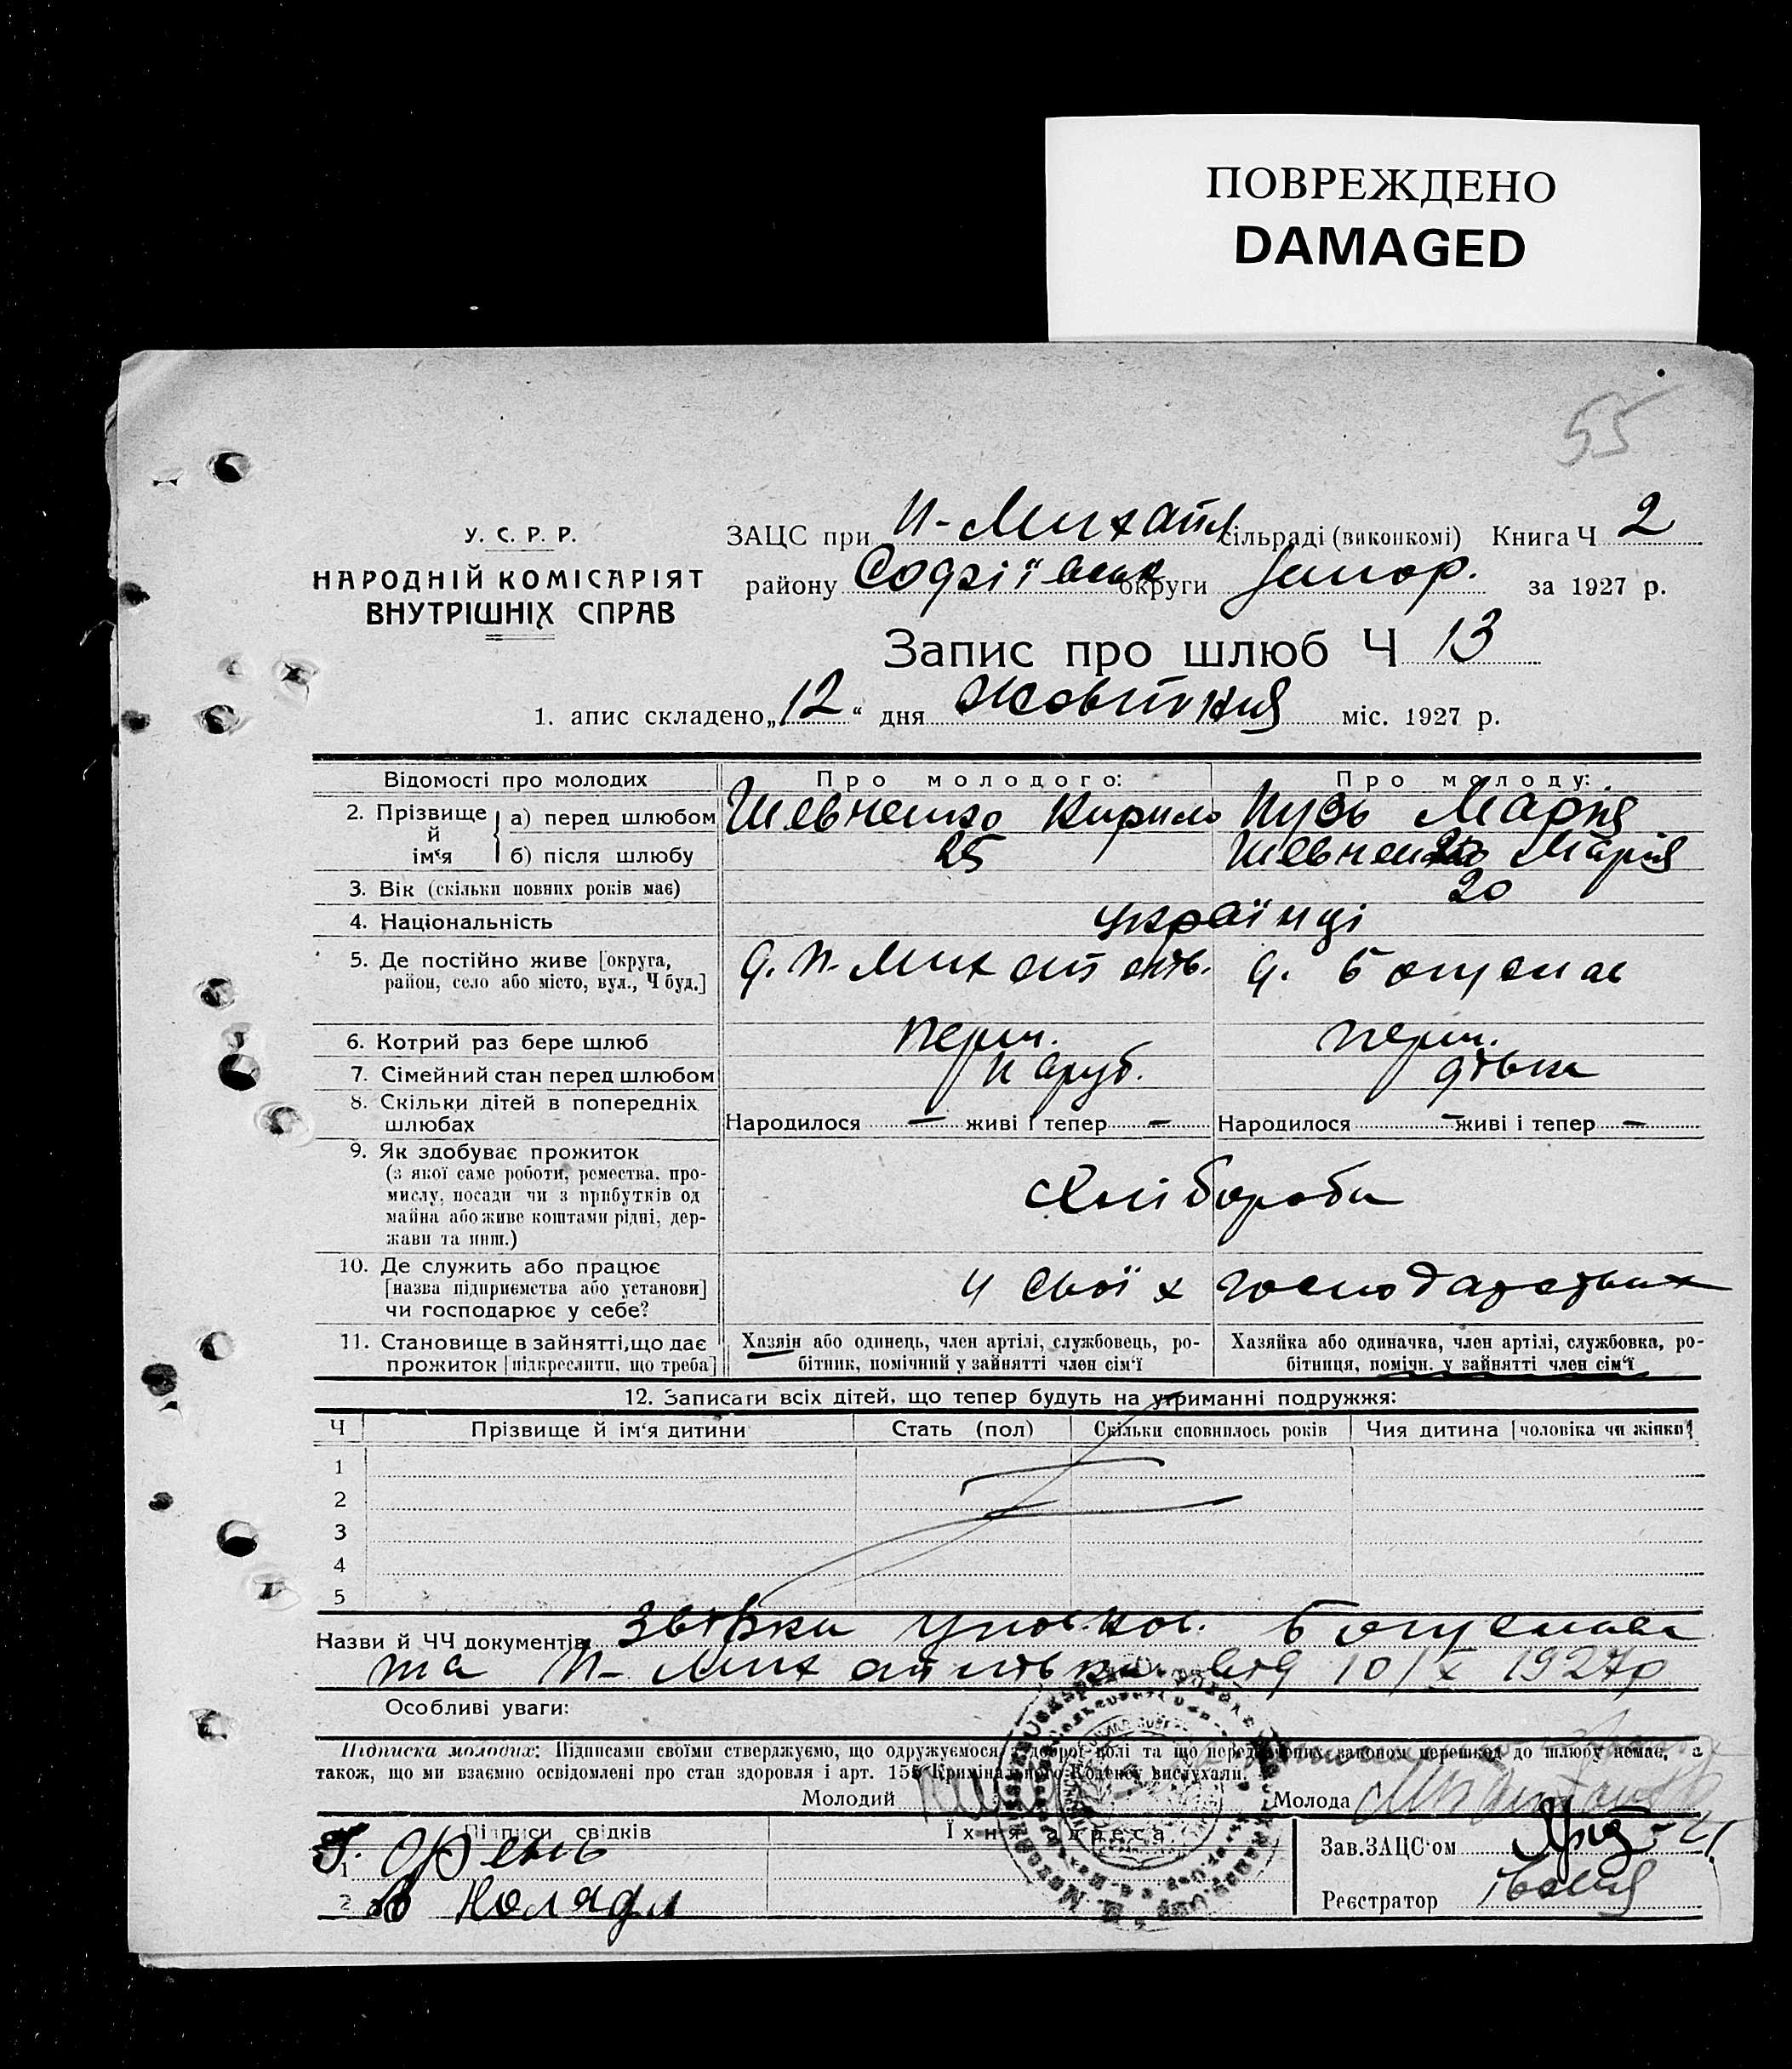 ПОВРЕЖДЕНО
DAMAGED
55
У. С. Р. Р.
НАРОДНІЙ КОМІСАРІЯТ
ВНУТРІШНІХ СПРАВ
ЗАЦС при Н-Михайл сільраді (виконкомі) Книга Ч 2
району Софіївськ округи Запор. за 1927 р.
Запис про шлюб Ч 13
1. апис складено „12“ дня Жовтня міс. 1927 р.
Відомості про молодих Про молодого: Про молоду:
2. Прізвище й ім‘я а) перед шлюбом Шевченко Кирило Пузь Марія
б) після шлюбу Шевченко Марія
3. Вік (скільки повних років має) 25 20
4. Національність українці
5. Де постійно живе [округа, район, село або місто, вул., Ч буд.] с. Н-Михайлів. с. Богуслав
6. Котрий раз бере шлюб перш. перш.
7. Сімейний стан перед шлюбом паруб. дівка
8. Скільки дітей в попередніх шлюбах Народилося — живі і тепер — Народилося — живі і тепер —
9. Як здобуває прожиток
(з якої саме роботи, ремества, про-
мислу, посади чи з прибутків од
майна або живе коштами рідні, дер-
жави та инш.)
Хлібороби
10. Де служить або працює
[назва підприємства або установи]
чи господарює у себе?
у своїх господарствах
11. Становище в зайнятті, що дає
прожиток [підкреслити, що треба]
Хазяін або одинець, член артілі, службовець, ро-
бітник, помічний у зайнятті член сім‘ї
Хазяйка або одиначка, член артілі, службовка, ро-
бітниця, помічн. у зайнятті член сім‘ї
12. Записати всіх дітей, що тепер будуть на утриманні подружжя:
Ч Прізвище й ім‘я дитини Стать (пол) Скільки сповнилось років Чия дитина [чоловіка чи жінки]
1
2
3
4
5
Назви й ЧЧ документів Богуслава
та Н-Михайлівки від 10/X 1927р
Особливі уваги:
Підписка молодих: Підписами своїми стверджуємо, що одружуємося з доброї волі та що передбачених законом перешкод до шлюбу немає, а
також, що ми взаємно освідомлені про стан здоровля і арт. 155 Кримінального Кодексу вислухали.
Молодий Молода
Підписи свідків Їхня адреса Зав. ЗАЦС‘ом
1
2 Коляда Реєстратор